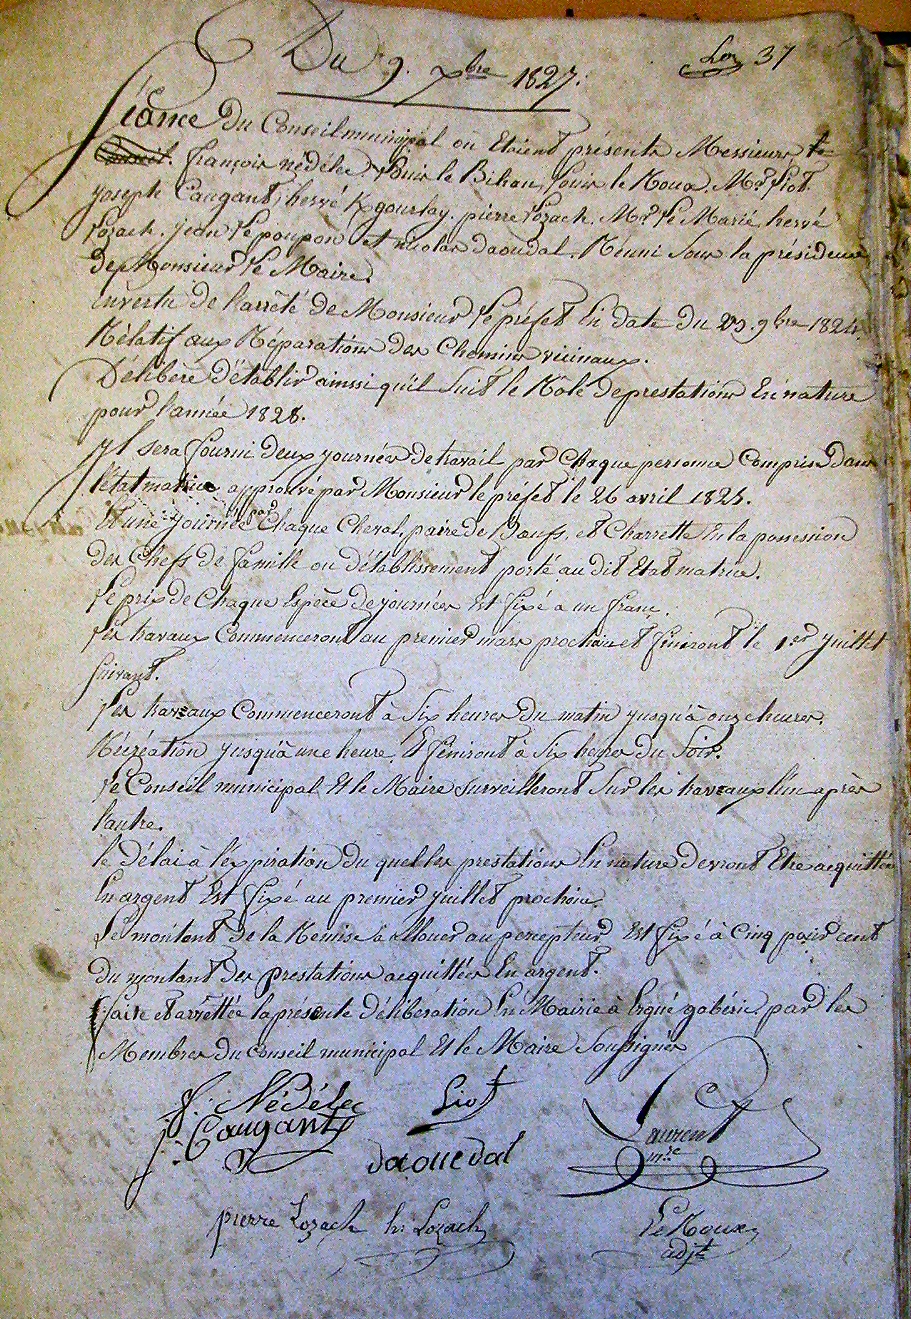 Du 9. xbre 1827.
Lor 37
Séance du Conseil municipal où Etoient présents Messieurs
françois nédélec Louis le Bihan, Louis le Roux. Mr. Liot.
joseph Caugant, hervé Kgourlay. pierre Lozach. Mr. Le Marié, hervé
Lozach. jean Le poupon et nicolas daoudal. Réuni Sous la présidence
De Monsieur Le Maire.
Envertu de l'arrêté de Monsieur Le préfet En date du 29. 9bre 1824.
Rélatif aux Réparations des Chemins vicinaux.
Délibère d'établir ainssi qu'il Suit le Rôle de prestations En nature
pour l'année 1828.
Yl sera fourni deux journées de travail par Chaque personne Comprise dans
l'état matrice approuvé par Monsieur le préfet le 26 avril 1825.
Et une journée par Chaque Cheval, paire de Bœufs, et Charrette En la possession
des Chefs de famille ou d'établissement porté au dit Etat matrice.
Le prix de Chaque Espèce de journées Est fixé a un franc.
Les travaux Commenceront au premier mars prochain et finiront le 1er juillet
suivant.
Les travaux Commenceront à Six heures du matin jusqu'à onze heures,
Récréation jusqu'à une heure, Et finiront à Six heures du Soir.
Le Conseil municipal Et le Maire Surveilleront Sur les travaux l'un après
l'autre.
le délai à l'éxpiration du quel les prestations En nature devront Etre acquittées
En argent Est fixé au premier juillet prochain
Le montent de la Remise à Allouer au percepteur Est fixé à Cinq pour cent
du montant des prestations acquittées En argent.
faite et arrêttée la présente délibération En Mairie à Ergué gabéric par les
Membres du Conseil municipal Et le Maire Soussignés
f. Nédélec
Liot
Laurent
mre
j. Caugant
daouedal
pierre Lozach
h. Lozach
Le Roux
adjt